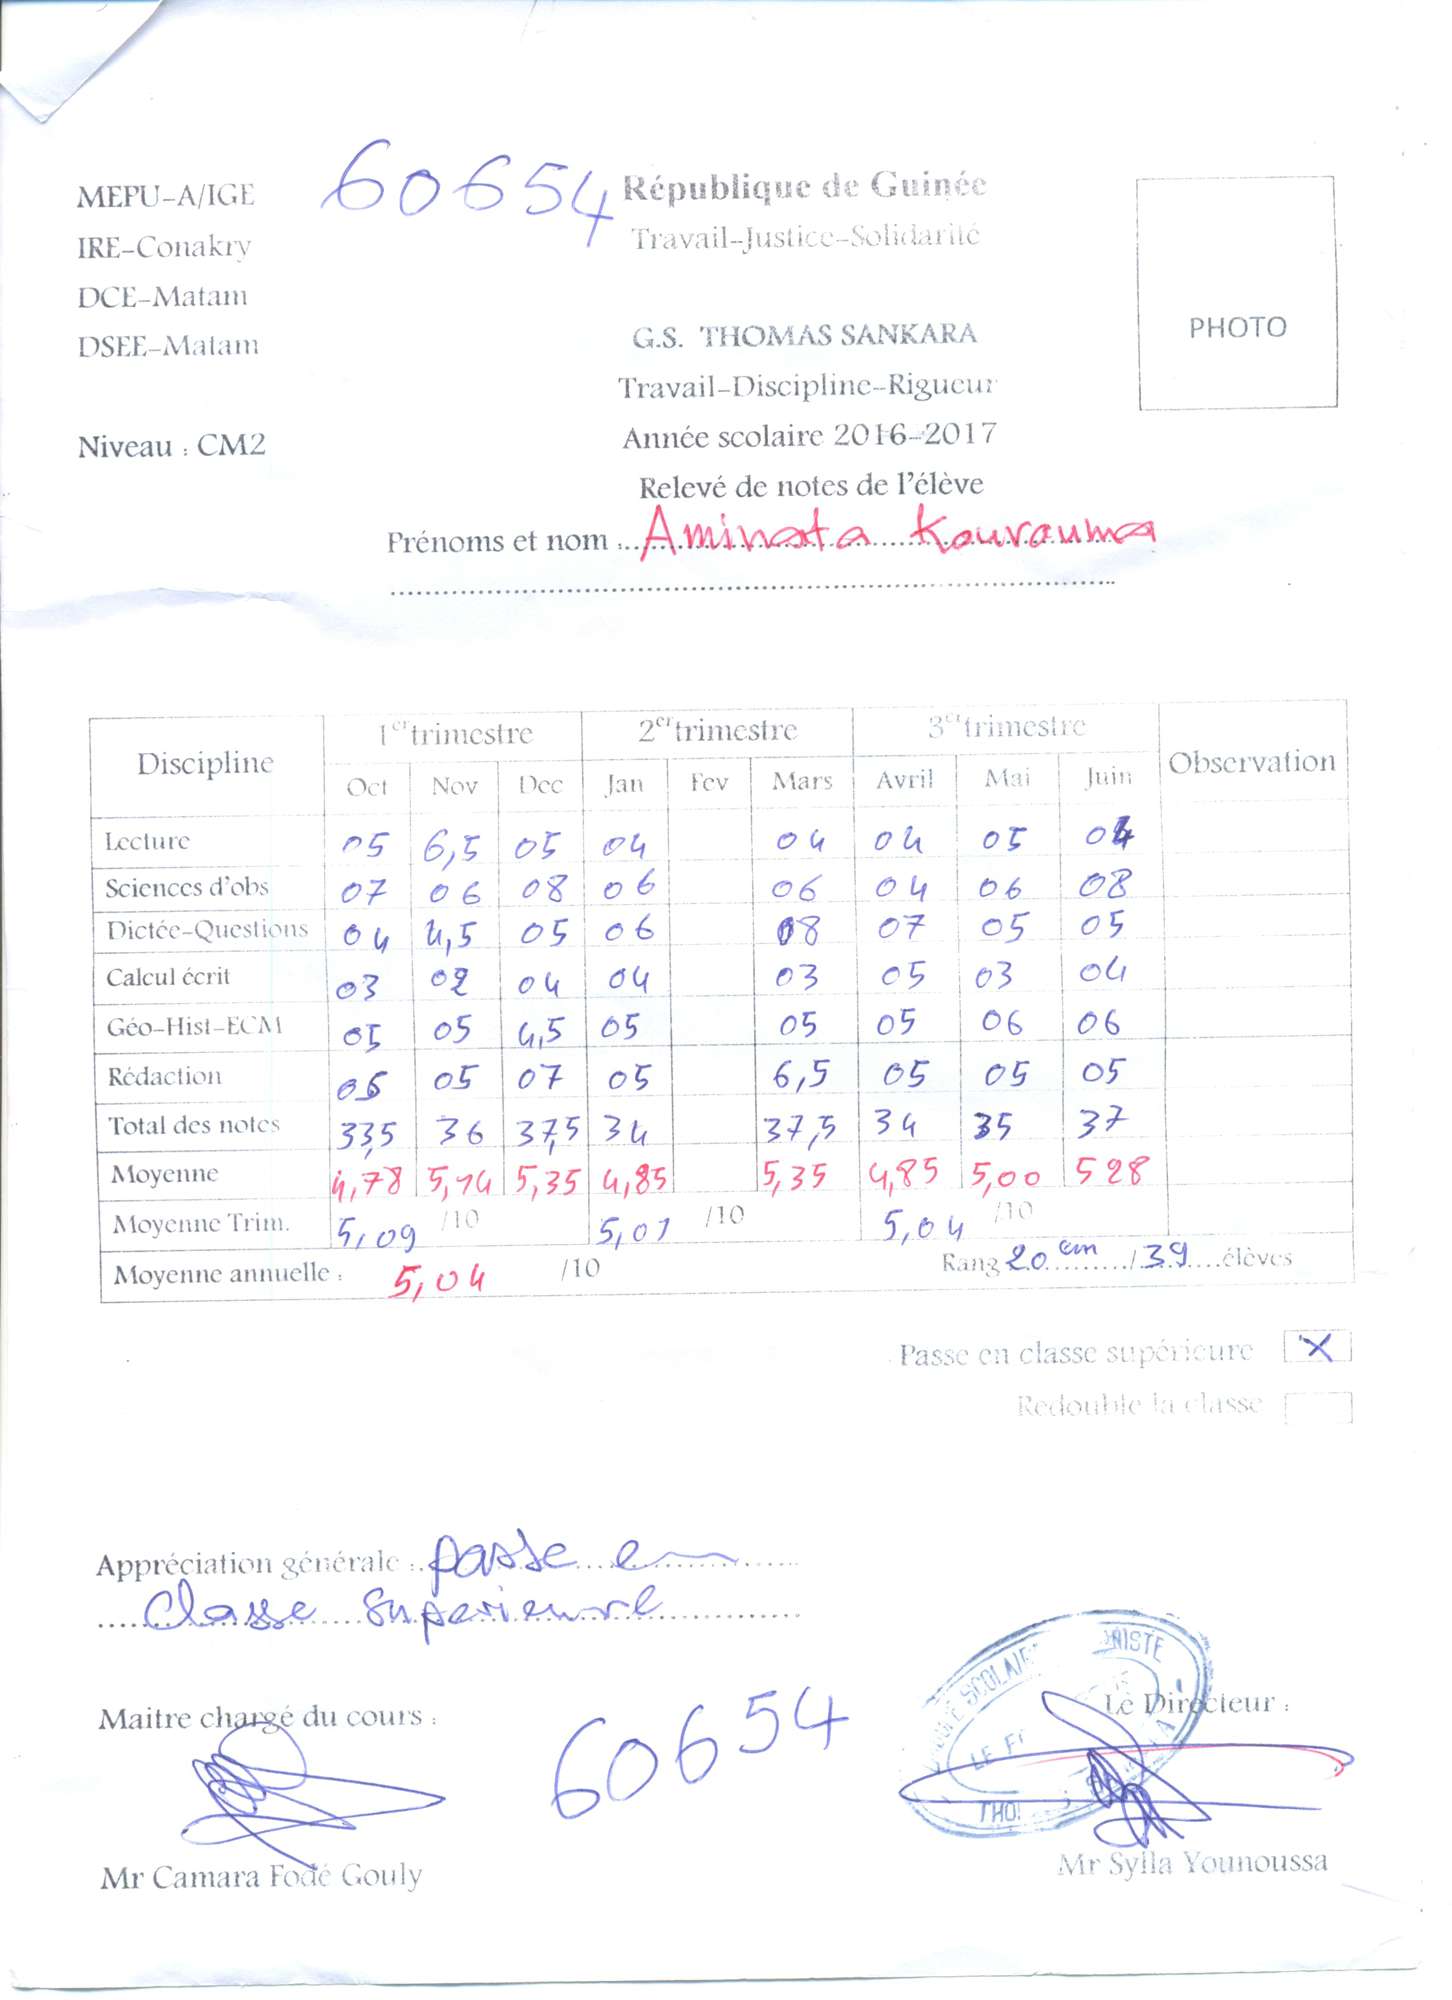 60654
MEPU-A/IGE
IRE-Conakry
DCE-Matam
DSEE-Matam
Niveau : CM2
République de Guinée
Travail-Justice-Solidarité
G.S. THOMAS SANKARA
Travail-Discipline-Rigueur
Année scolaire 2016-2017
Relevé de notes de l'élève
PHOTO
Prénoms et nom : Aminata Kourouma
Discipline 1er trimestre 2er trimestre 3er trimestre Observation
Oct Nov Dec Jan Fev Mars Avril Mai Juin
Lecture 05 6,5 05 04 04 04 05 04
Sciences d'obs 07 06 08 06 06 04 06 08
Dictée-Questions 04 4,5 05 06 08 07 05 05
Calcul écrit 03 02 04 04 03 05 03 04
Géo-Hist-ECM 05 05 4,5 05 05 05 06 06
Rédaction 05 05 07 05 6,5 05 05 05
Total des notes 33,5 36 37,5 34 37,5 34 35 37
Moyenne 4,78 5,14 5,35 4,85 5,35 4,85 5,00 528
Moyenne Trim. 5,09 /10 5,01 /10 5,04 /10
Moyenne annuelle : 5,04 /10 Rang 20 em / 39 élèves
Passe en classe supérieure X
Redouble la classe
Appréciation générale : passe en
classe Superieure
Maitre chargé du cours :
60654
Le Directeur :
Mr Camara Fodé Gouly
Mr Sylla Younoussa